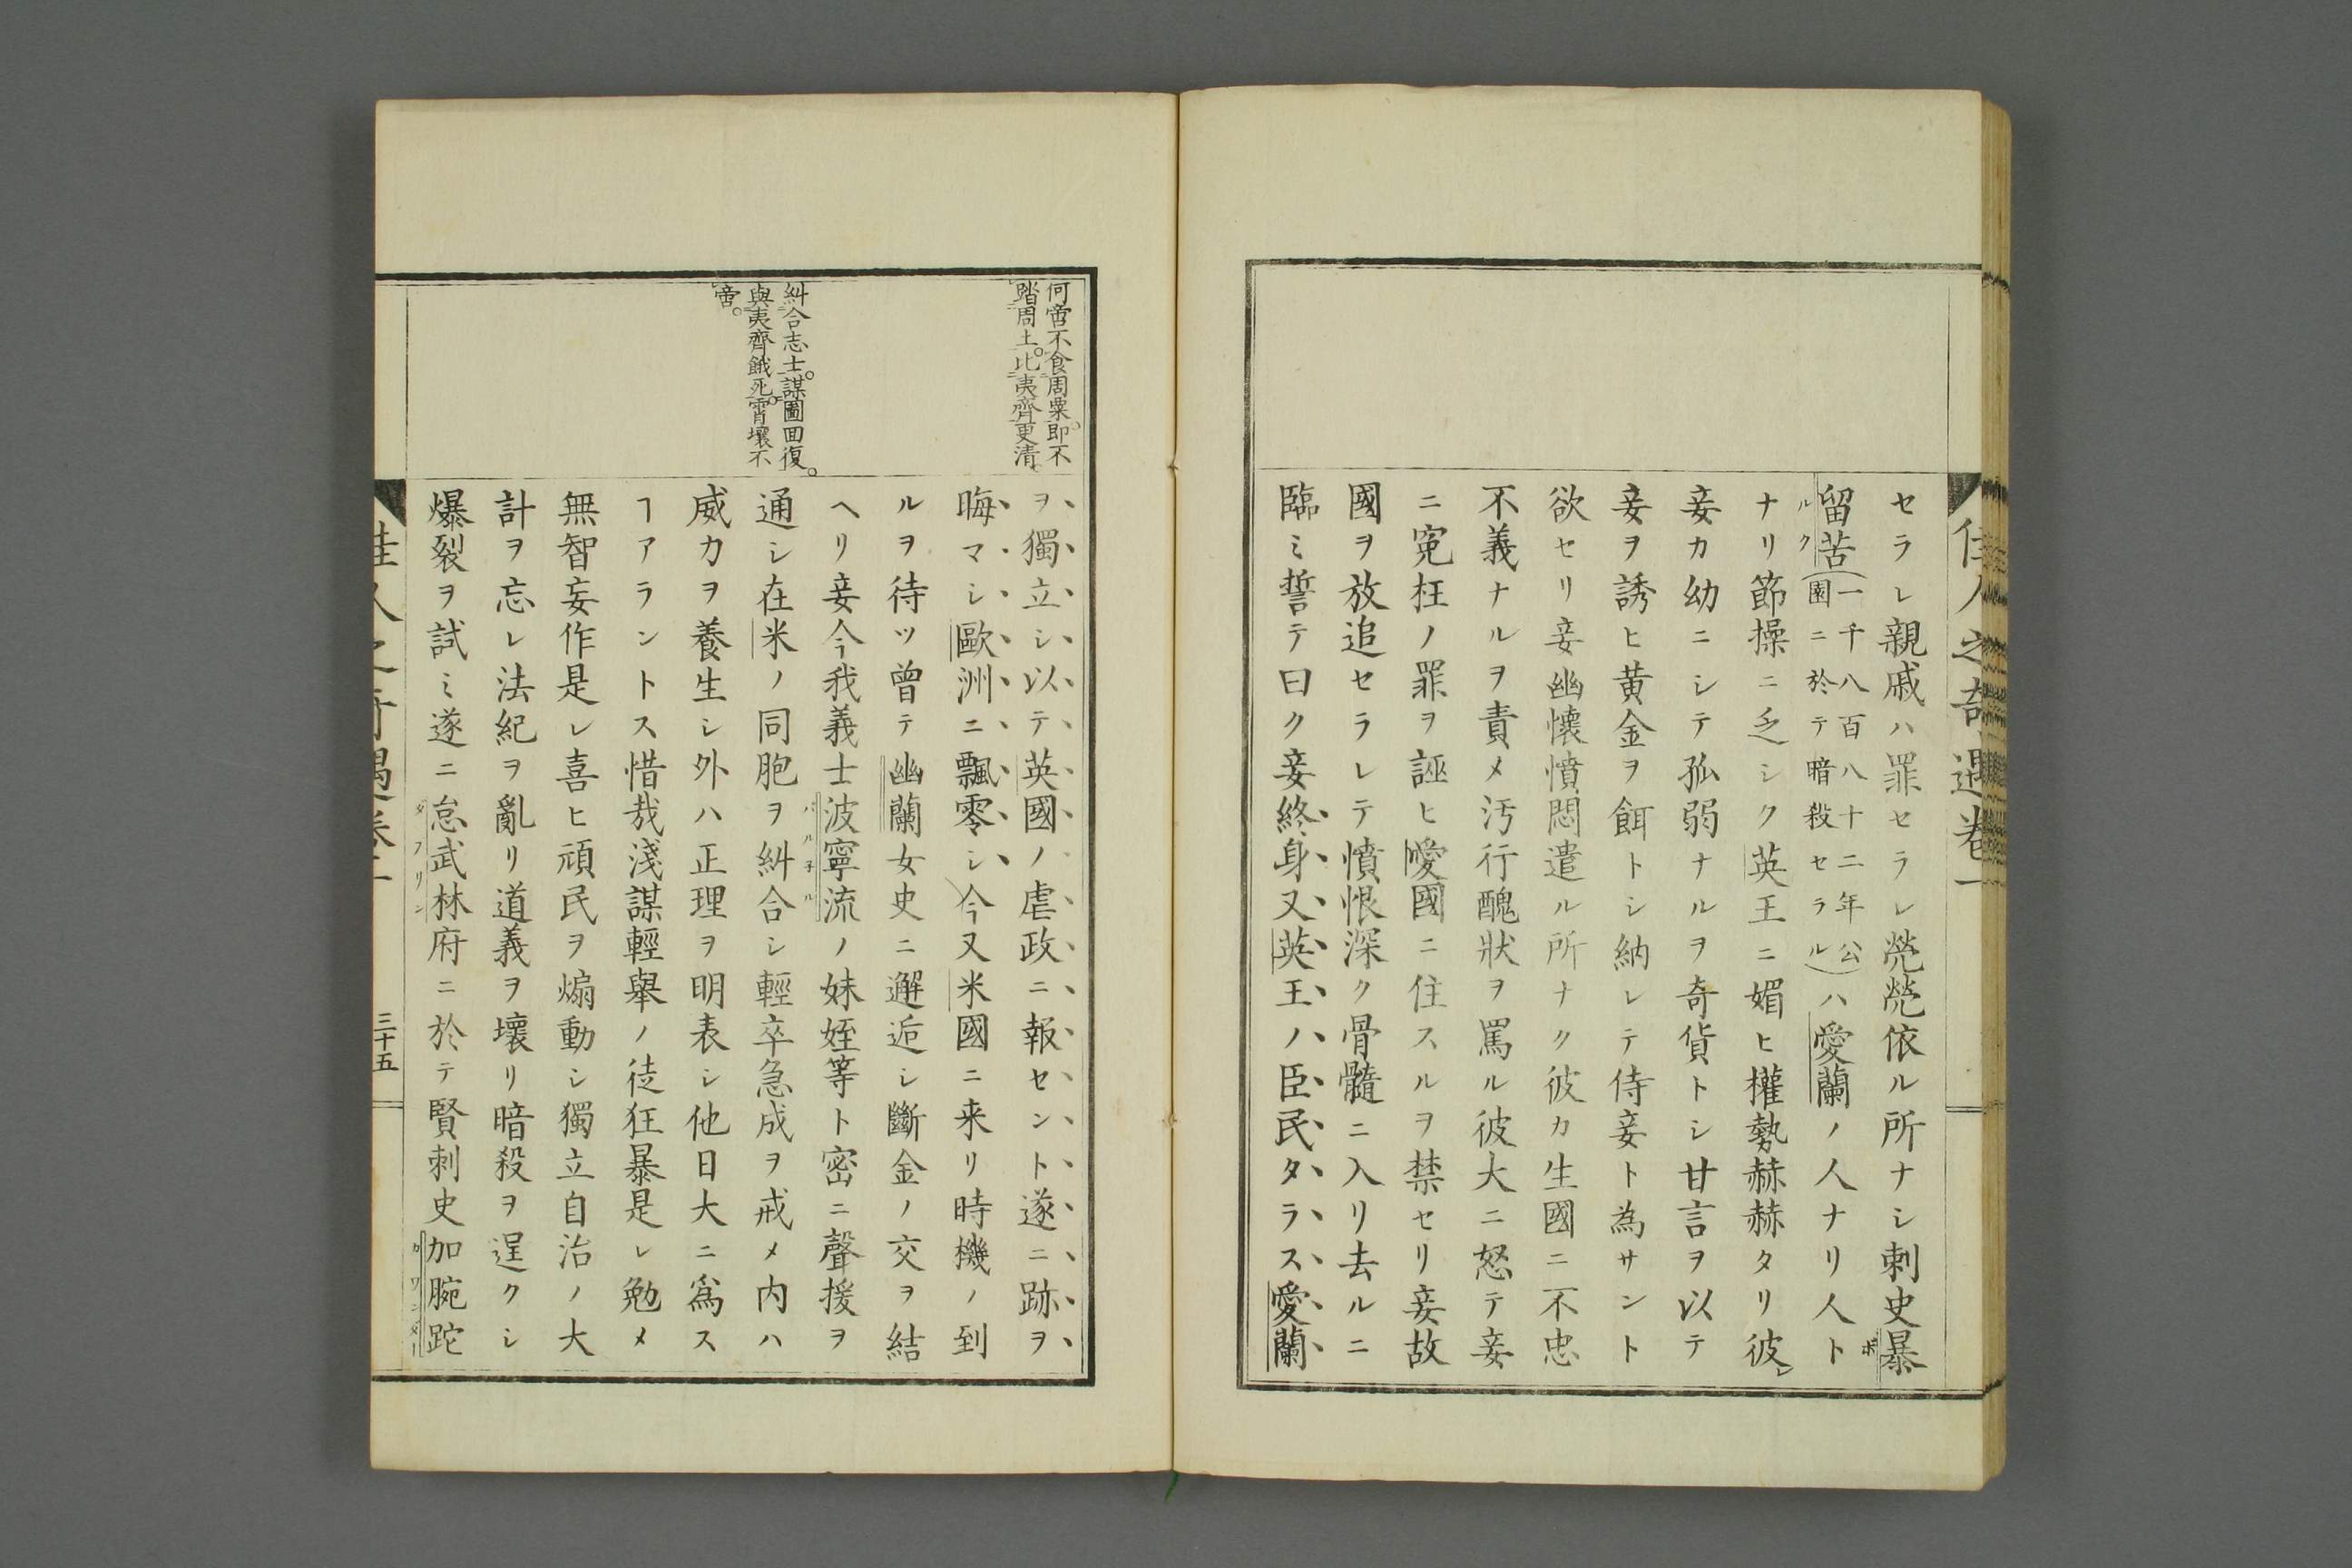 佳人之奇遇卷一
セラレ親戚ハ罪セラレ煢煢依ル所ナシ刺史暴
留苦(一千八百八十二年公園ニ於テ暗殺セラル)ハ愛蘭ノ人ナリ人ト
ナリ節操ニ乏シク英王ニ媚ヒ權勢赫赫タリ彼レ
妾カ幼ニシテ孤弱ナルヲ奇貨トシ甘言ヲ以テ
妾ヲ誘ヒ黄金ヲ餌トシ納レテ侍妾ト為サント
欲セリ妾幽懷憤悶遣ル所ナク彼カ生國ニ不忠
不義ナルヲ責メ汚行醜狀ヲ罵ル彼大ニ怒テ妾
ニ寃枉ノ罪ヲ誣ヒ愛國ニ住スルヲ禁セリ妾故
國ヲ放追セラレテ憤恨深ク骨髓ニ入リ去ルニ
臨ミ誓テ曰ク妾終身又英王ノ臣民タラス愛蘭
何啻不食周粟。即不
踏周土。比夷齊更清。
糾合志士。謀圖回復。
與夷齊餓死。霄壤不
啻。
ヲ獨立シ以テ英國ノ虐政ニ報セント遂ニ跡ヲ
晦マシ歐洲ニ飄零シ今又米國ニ来リ時機ノ到
ルヲ待ツ曾テ幽蘭女史ニ邂逅シ斷金ノ交ヲ結
ヘリ妾今我義士波寧流ノ妹姪等ト密ニ聲援ヲ
通シ在米ノ同胞ヲ糾合シ輕卒急成ヲ戒メ内ハ
威力ヲ養生シ外ハ正理ヲ明表シ他日大ニ爲ス
ヿアラントス惜哉淺謀輕舉ノ徒狂暴是レ勉メ
無智妄作是レ喜ヒ頑民ヲ煽動シ獨立自治ノ大
計ヲ忘レ法紀ヲ亂リ道義ヲ壞リ暗殺ヲ逞クシ
爆裂ヲ試ミ遂ニ怠武林府ニ於テ賢刺史加腕跎
佳人之奇遇卷一
三十五